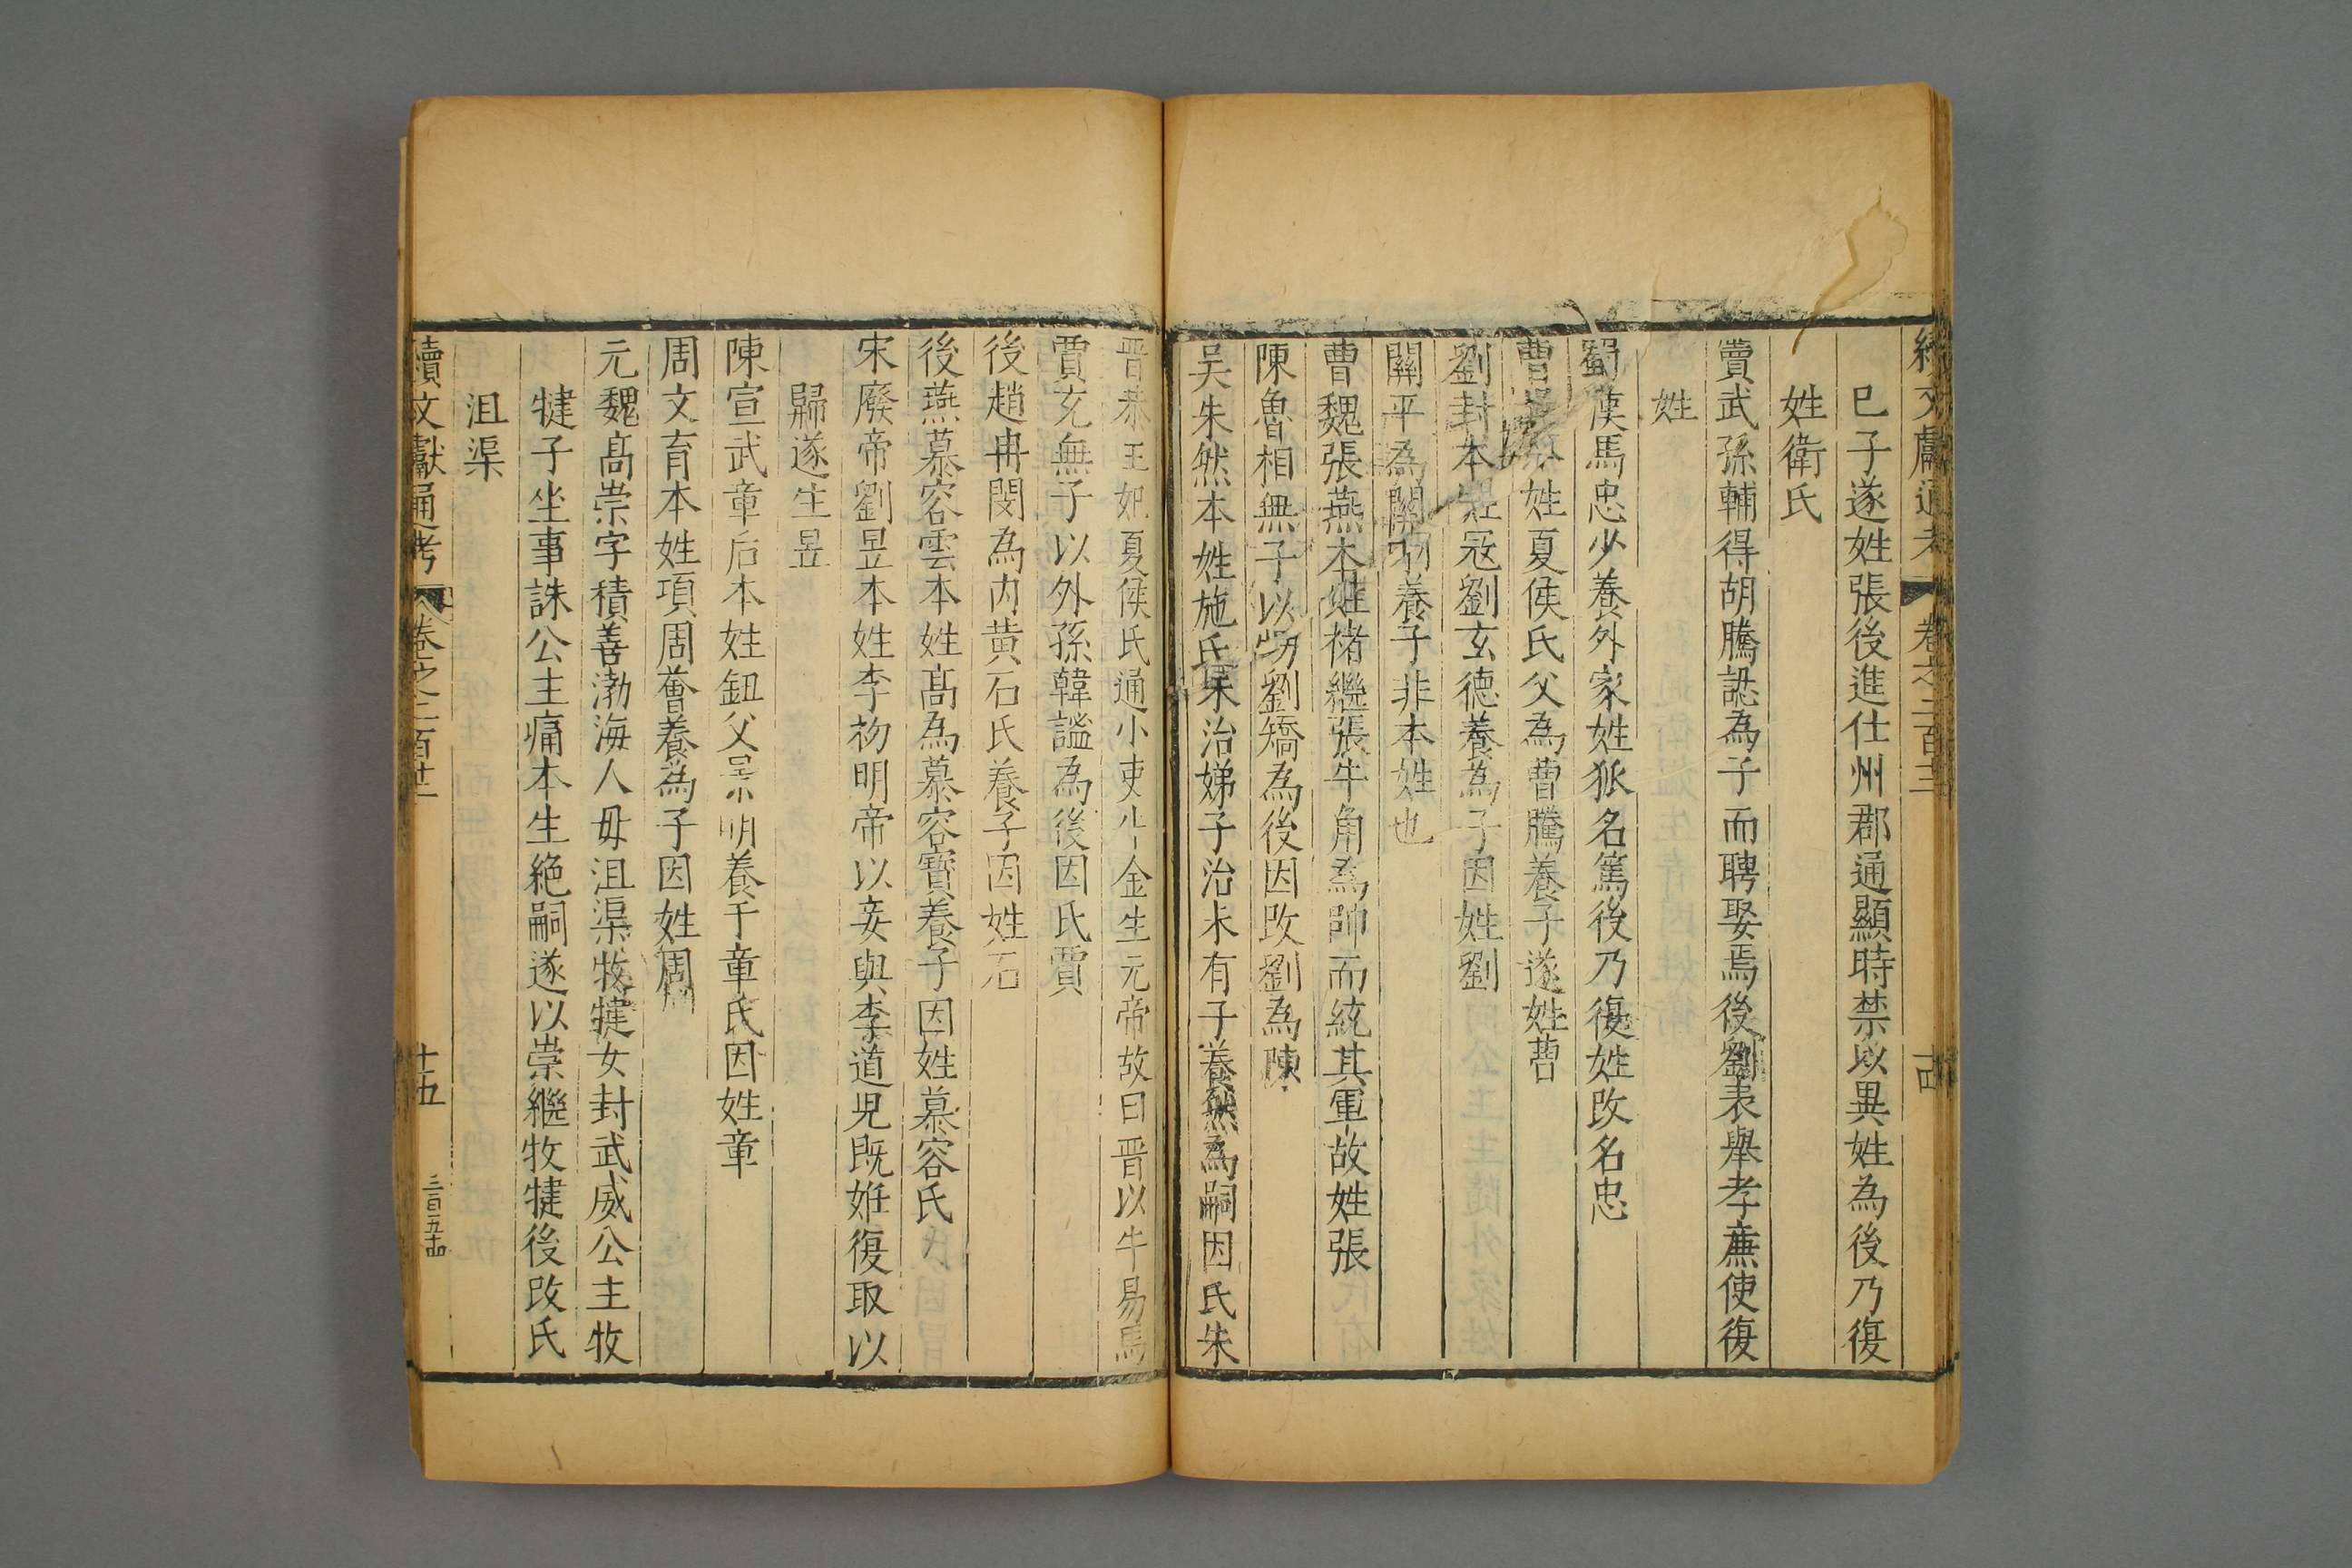 續文獻通考 卷之二百三 十四
巳子遂姓張後進仕州郡通顯時禁以異姓為後乃復
姓衛氏
竇武孫輔得胡騰認為子而聘娶焉後劉表舉孝廉使復
姓
蜀漢馬忠少養外家姓狐名篤後乃復姓改名忠
曹本姓夏侯氏父為曹騰養子遂姓曹
劉封本冦劉玄德養為子因姓劉
關平為關羽養子非本姓也
曹魏張燕本姓褚繼張牛角為帥而統其軍故姓張
陳魯相無子以甥劉矯為後因改劉為陳
吴朱然本姓施氏朱治娣子治未有子養然為嗣因氏朱
晋恭王妃夏侯氏通小吏牛金生元帝故曰晋以牛易馬
賈充無子以外孫韓謐為後因氏賈
後趙冉閔為内黄石氏養子因姓石
後燕慕容雲本姓髙為慕容寶養子因姓慕容氏
宋廢帝劉昱本姓李初明帝以妾與李道児既姙復取以
歸遂生昱
陳宣武章后本姓鈕父景明養于章氏因姓章
周文育本姓項周薈養為子因姓周
元魏髙崇字積善渤海人毋沮渠牧犍女封武威公主牧
犍子坐事誅公主痛本生絶嗣遂以崇繼牧犍後改氏
沮渠
續文獻通考 卷之二百三 十五 三百五十四